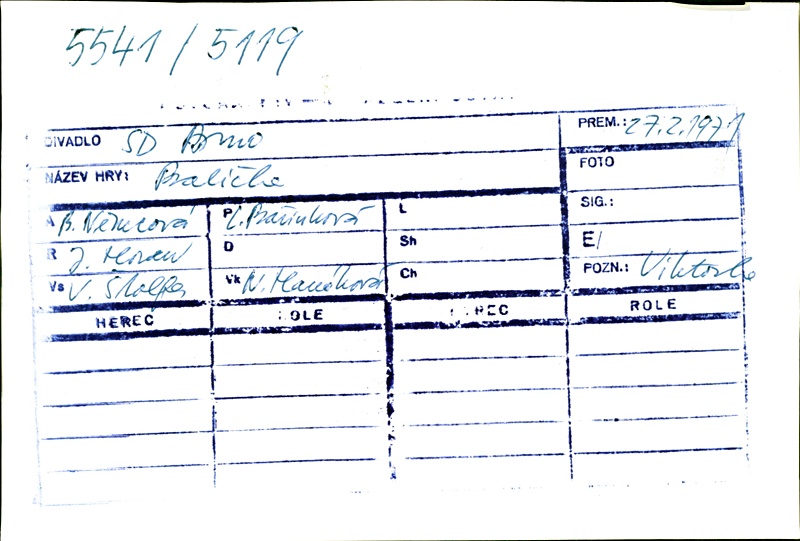 5541 / 5119
DIVADLO SD Brno PREM.: 27.2.1971
NÁZEV HRY: Babička FOTO
A B. Němcová P L. Bařinková L SIG.:
R J. Moran D Sh E/
Vs V. Štolfa Vk N. Hanáková Ch POZN.: Viktorka
HEREC ROLE HEREC ROLE